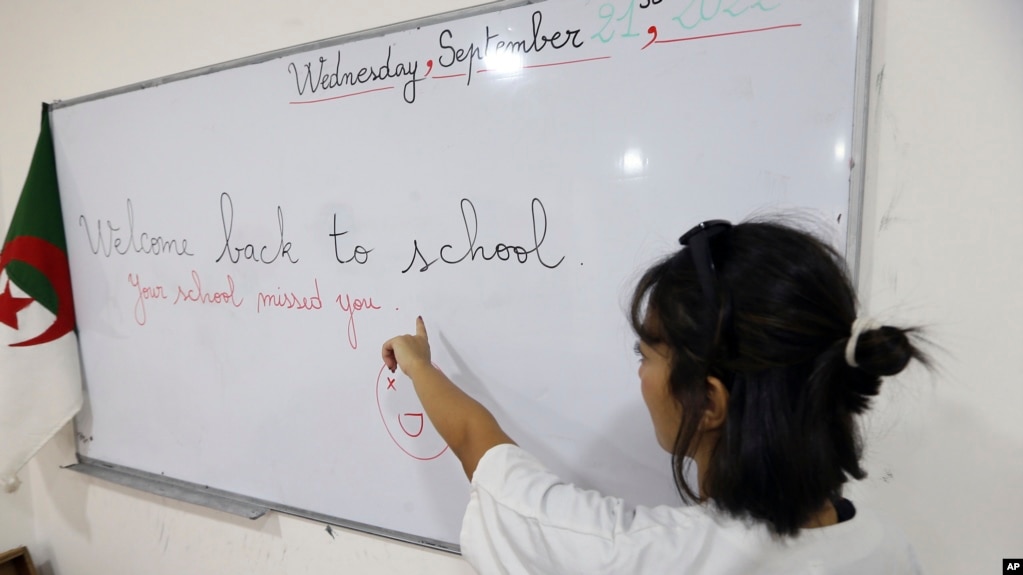 Wednesday, September 21st, 2022
Welcome back to school.
Your school missed you.
x
AP